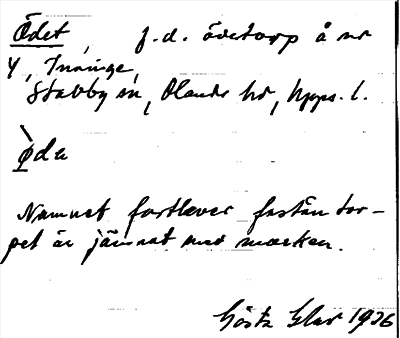 Ödet, f.d. ödetorp å nr
4, Inninge,
Stabby sn, Olands hd, Upps. l.
Öde
Namnet fortlever fastän tor-
pet är jämnat med marken.
Gösta 1936